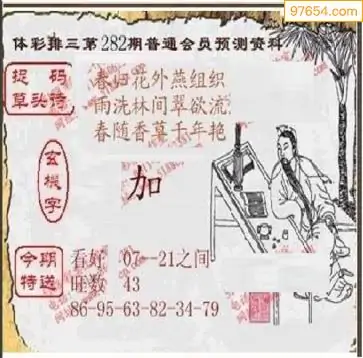 97654.com
体彩排三第282期普通会员预测资料
捉码
草头诗
春归花外燕组织
雨洗林间翠欲流
春随香草千年艳
玄機字
加
今期
特送
看好 07--21之间
旺数 43
86-95-63-82-34-79